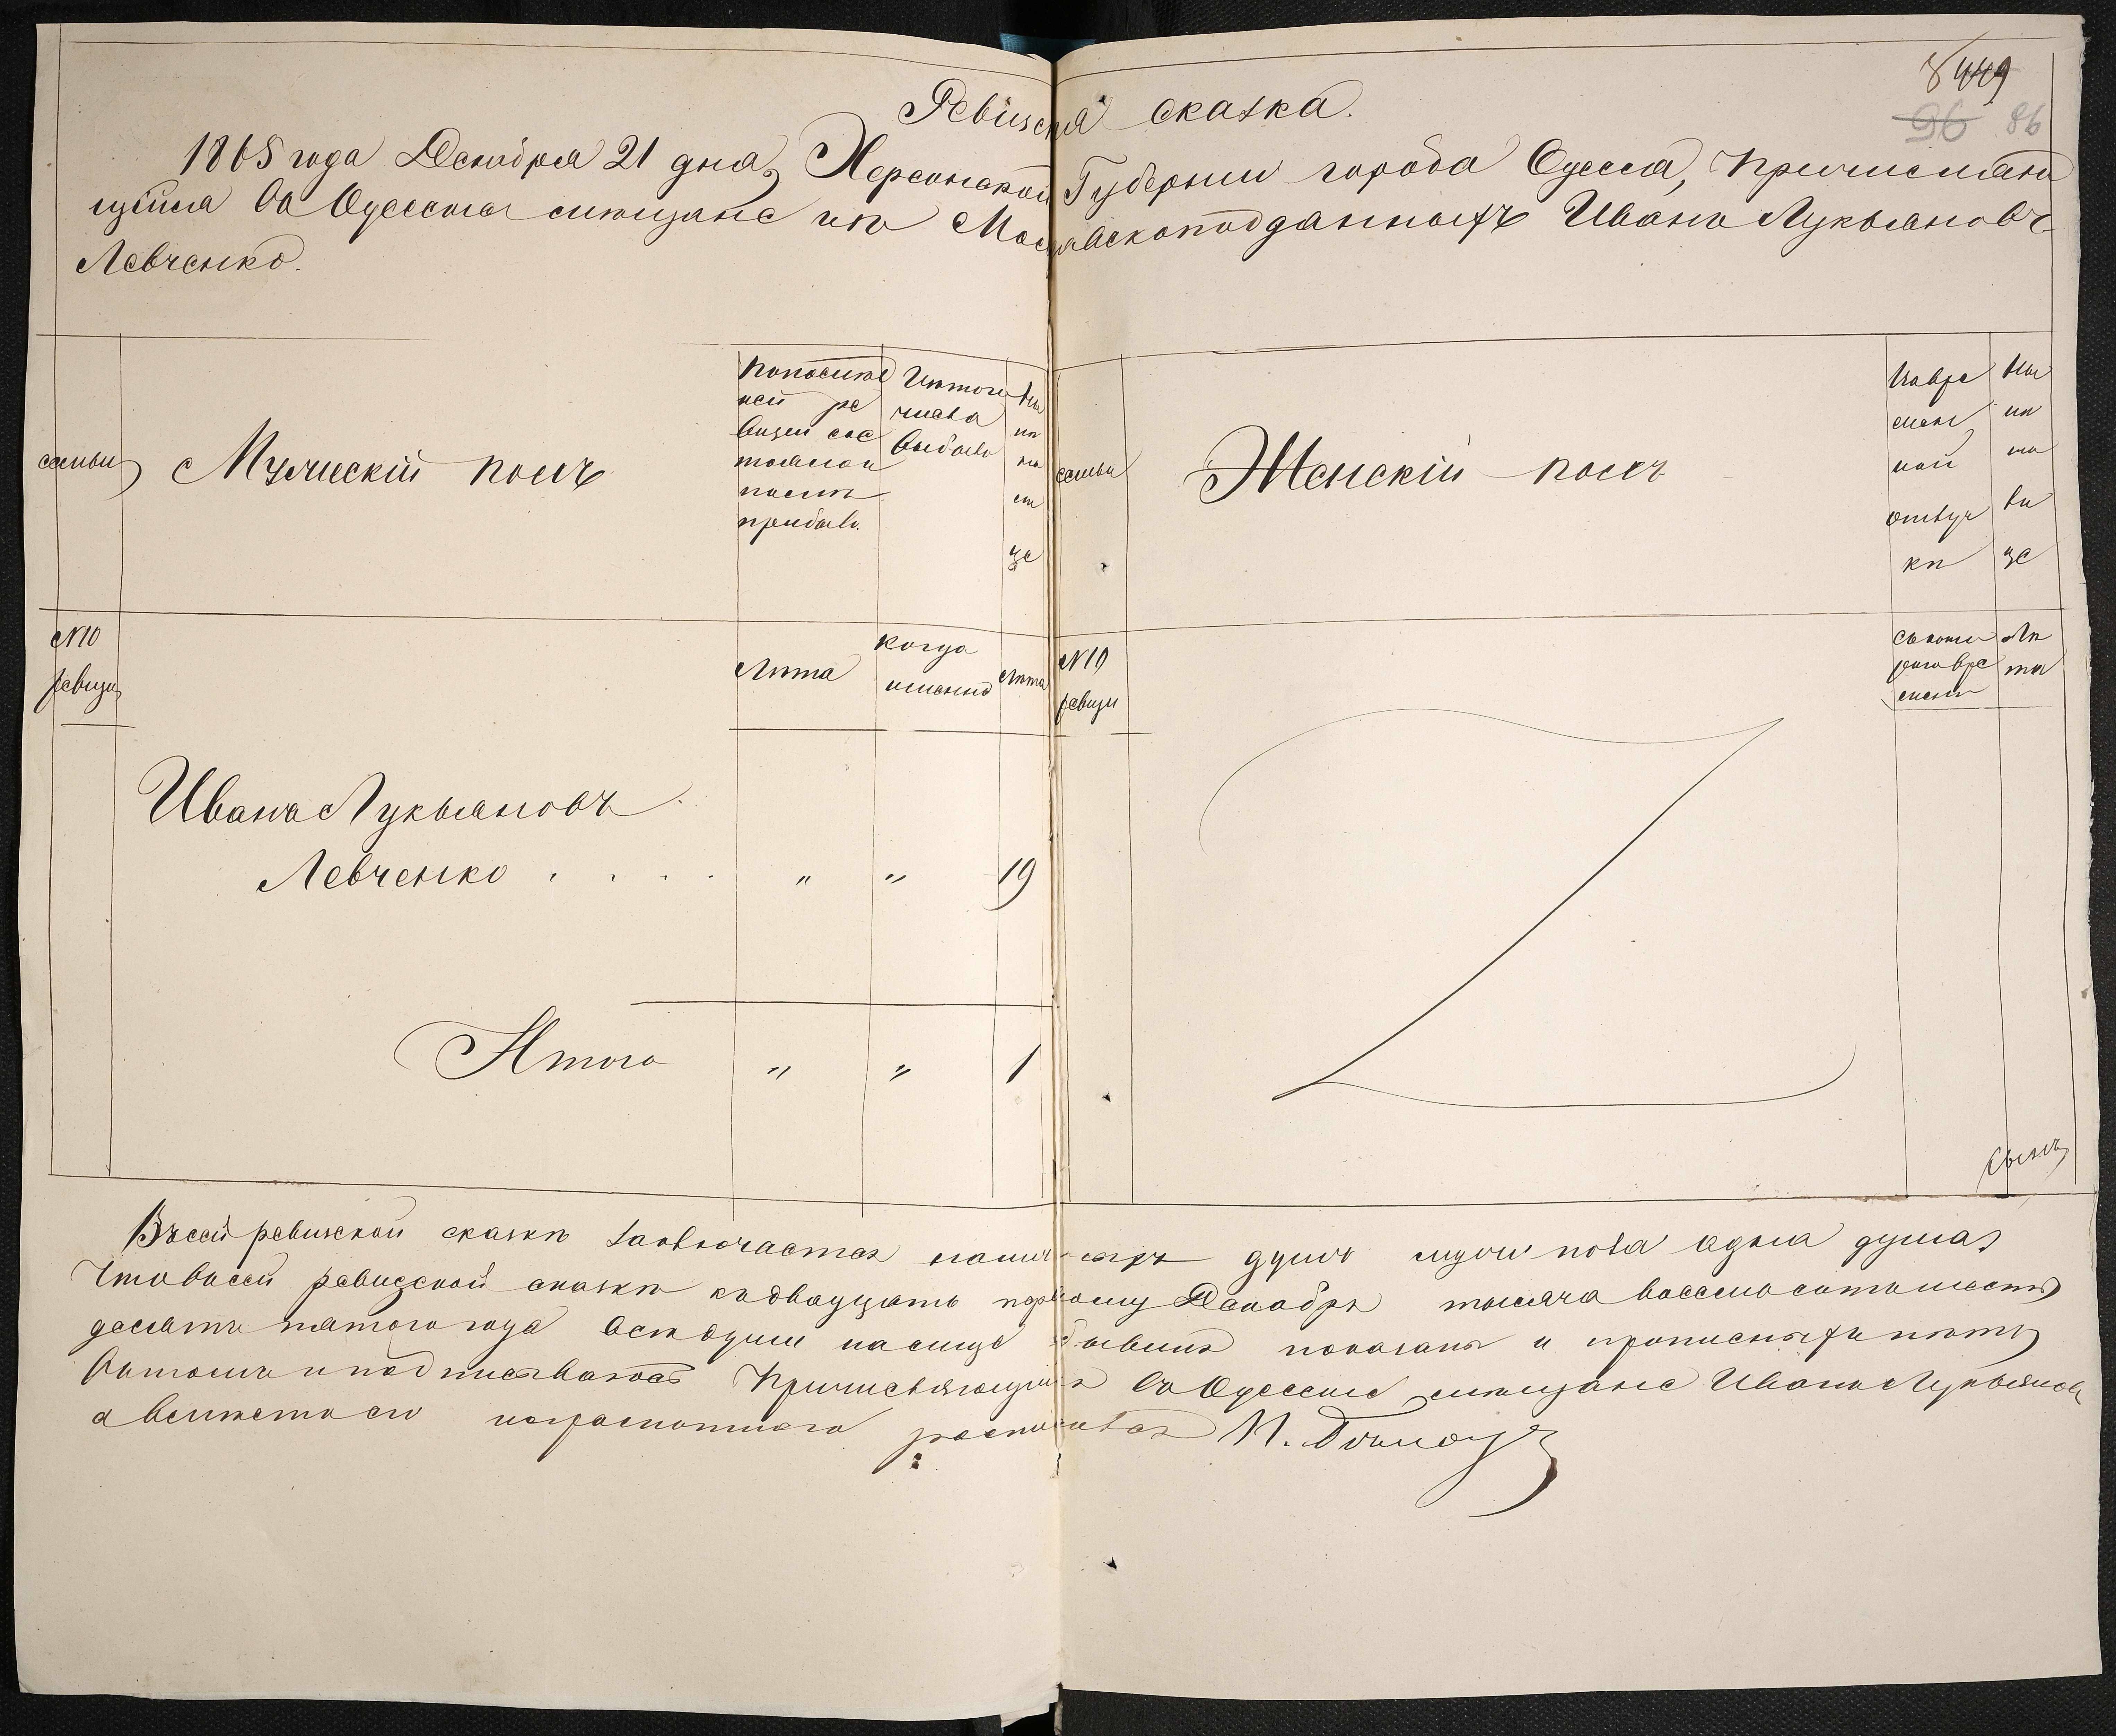 8 449
96 86
Ревизская сказка.
1865 года Декабря 21 дня, Херсонской Губернии города Одесса, Причисляю
щейся въ Одесскіе мещане изъ Молдавскоподданныхъ Иванъ Лукьяновъ
Левченко.
семьи
Мужескій полъ
По послед
ней ре
визіи сос
тояло и
после
прибыло.
Изъ того
числа
выбыло
Ны
не
на
ли
це
семьи
Женскій полъ
Во вре
мен
ной
отлуч
ке
Ны
не
на
ли
це
№10
ревизіи
Лета
Когда
именно
Лета
№10
ревизіи
Съ кото
раго вре
мени
Ле
та
Иванъ Лукьяновъ
Левченко . . . . " " 19
Итого " " 1
Въ сей ревизской сказке заключается наличныхъ душъ мужеска пола одна душа
Что въ сей ревизской сказке къ двадцать первому Декабря тысяча восемьсотъ шесть
десятъ пятого года все души на лице бывшія показаны и прописныхъ нетъ
въ томъ и подписываюсь Причисляющійся въ Одесскіе мещане Иванъ Лукьяновъ
а вместо его неграмотного расписался И.